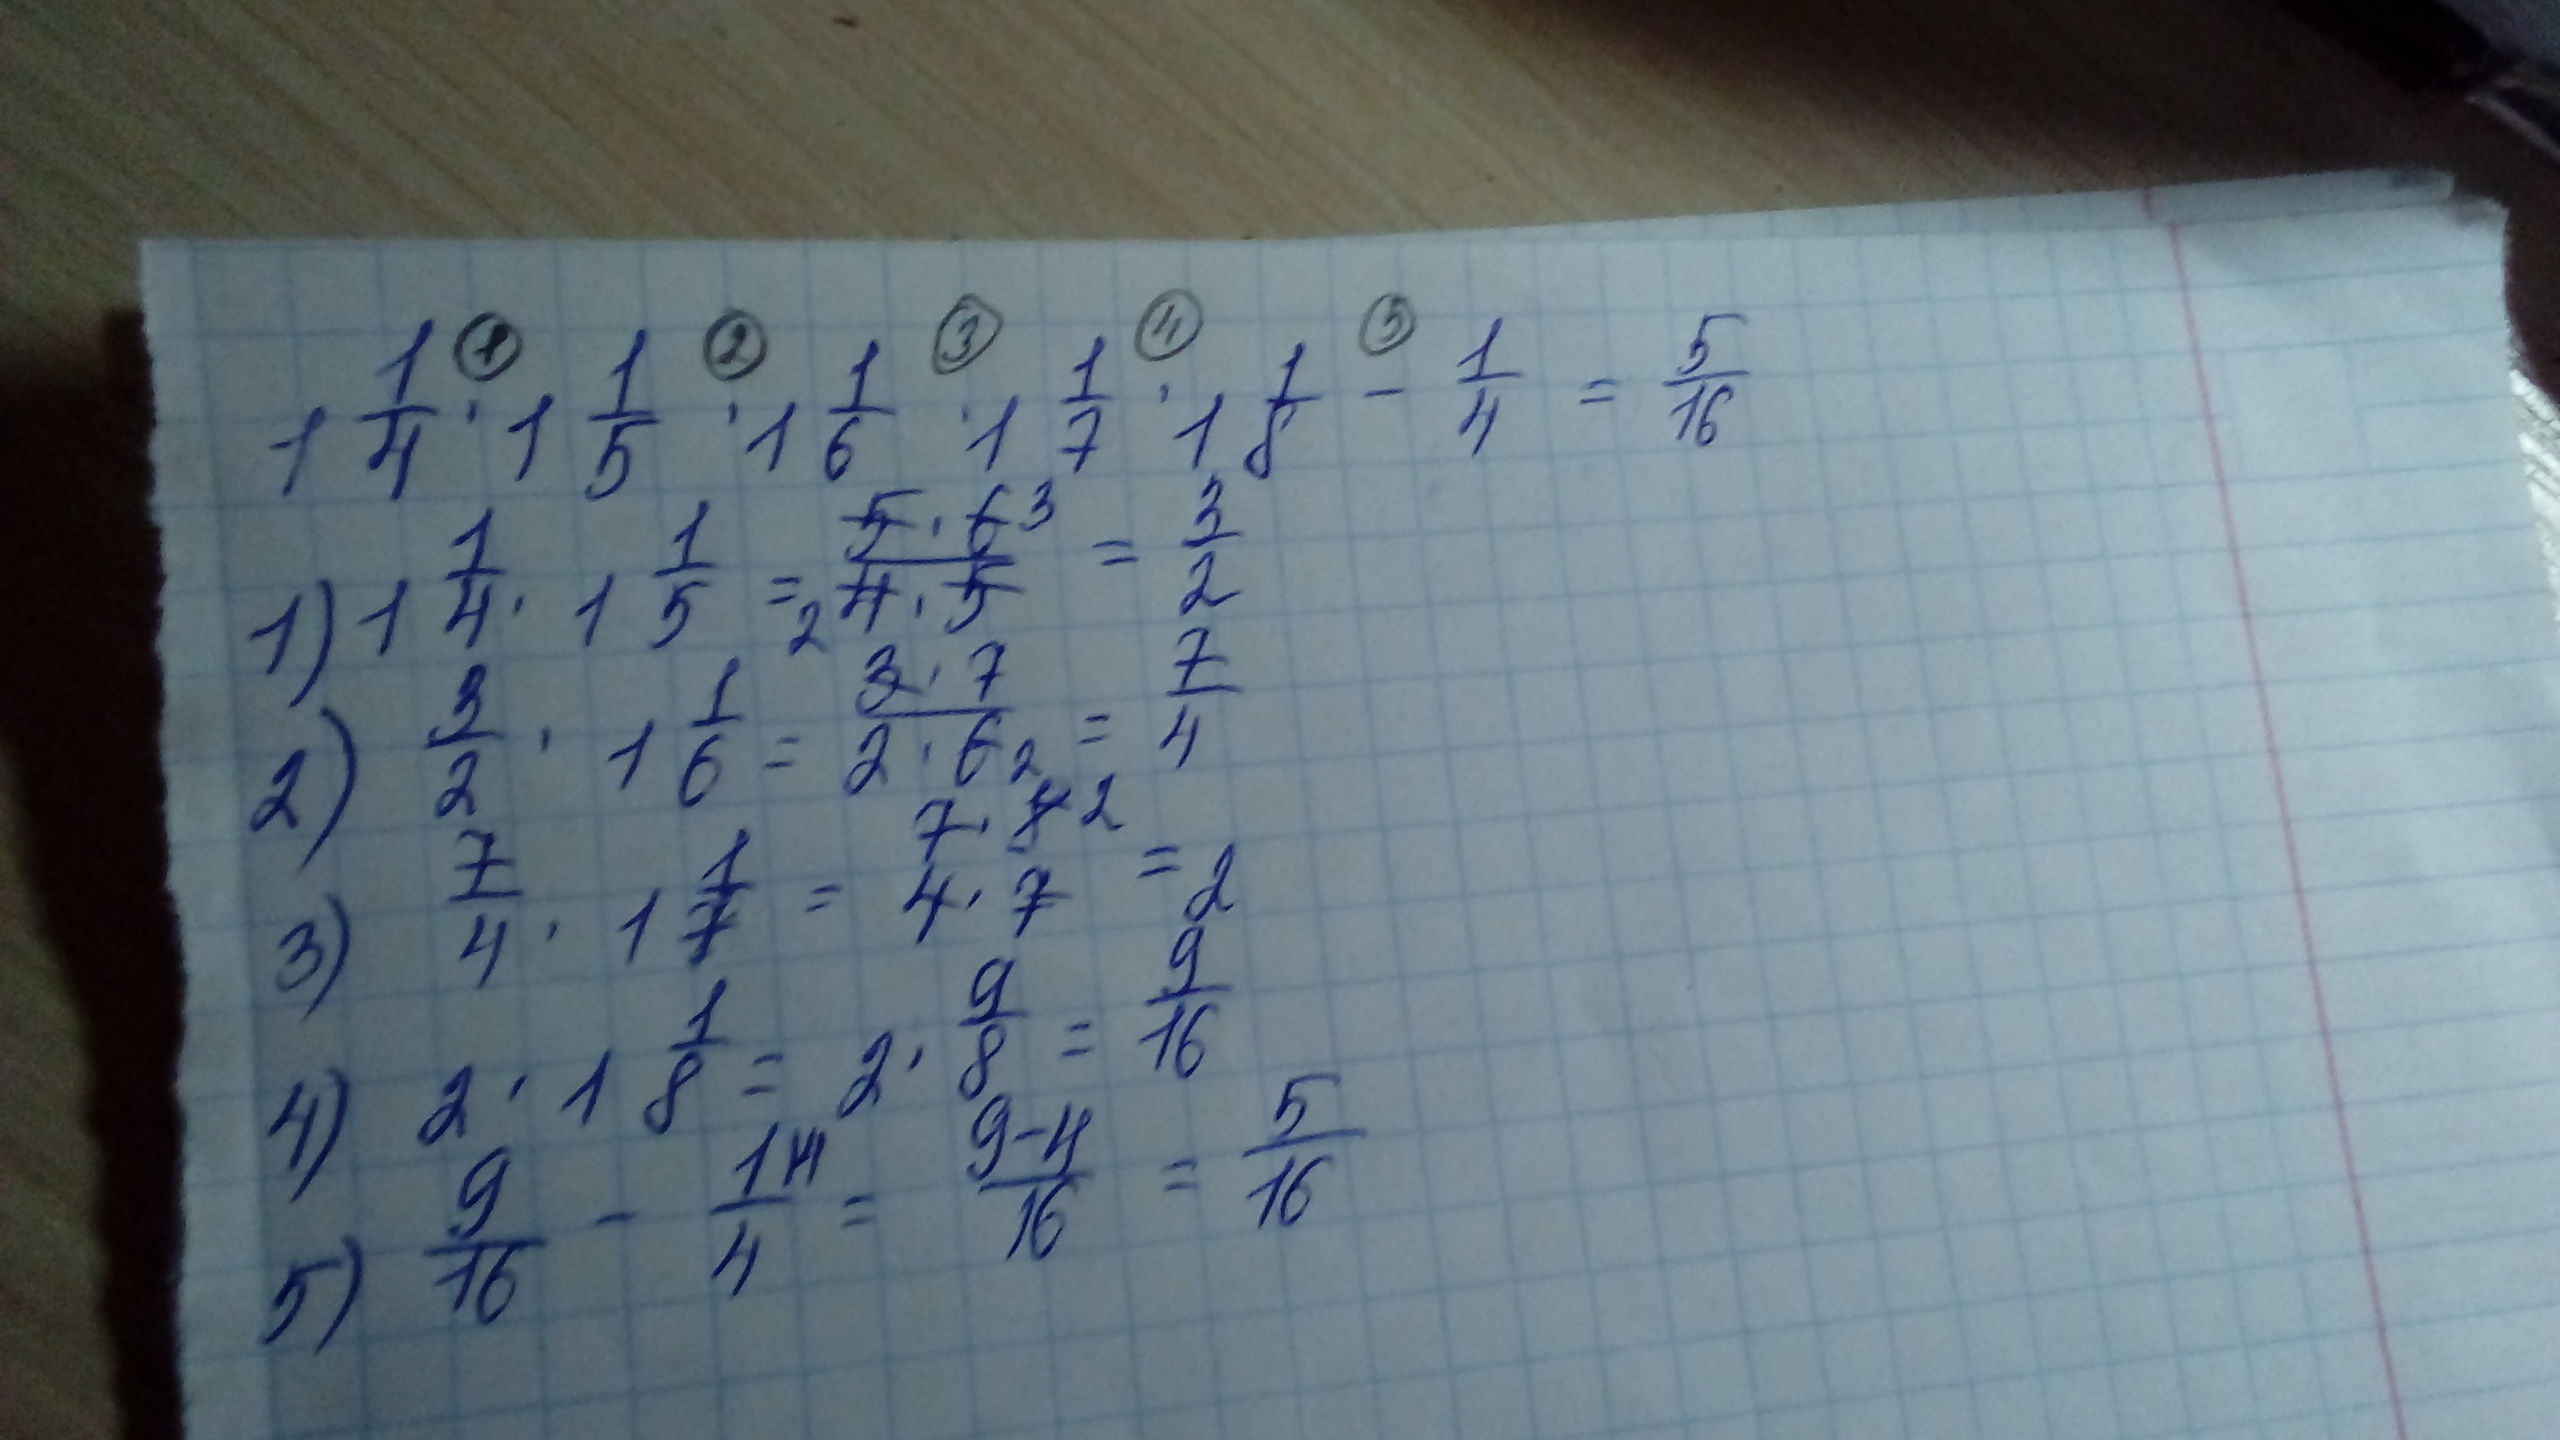 ① ② ③ ④ ⑤
1 1/4 · 1 1/5 · 1 1/6 · 1 1/7 · 1 1/8 - 1/4 = 5/16
1) 1 1/4 · 1 1/5 = 5 · 6 3 / 2 4 · 5 = 3/2
2) 3/2 · 1 1/6 = 3 · 7 / 2 · 6 2 = 7/4
3) 7/4 · 1 1/7 = 7 · 8 2 / 4 · 7 = 2
4) 2 · 1 1/8 = 2 · 9/8 = 9/16
5) 9/16 - 1 \4 / 4 = 9-4/16 = 5/16